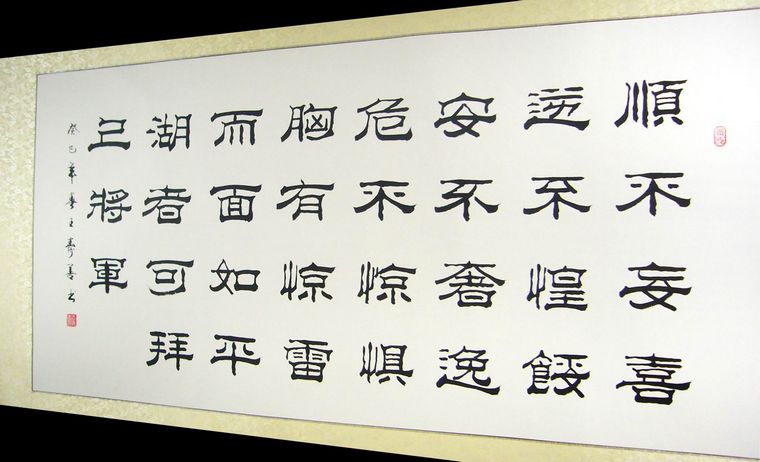 順不妄喜
逆不惶餒
安不奢逸
危不惊惧
胸有惊雷
而面如平
湖者可拜
上將軍
癸巳年春王善书